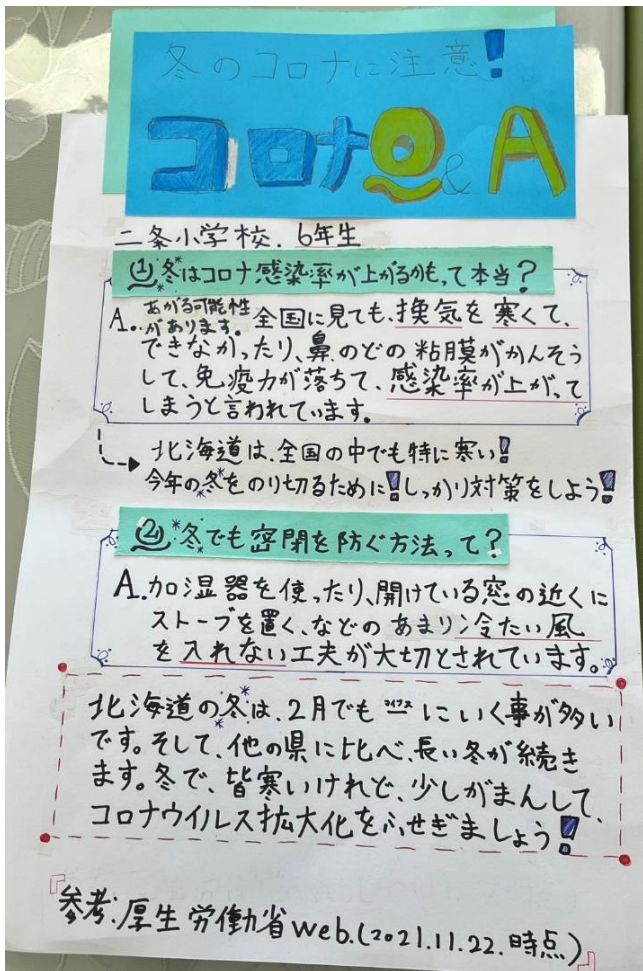 冬のコロナに注意!
コロナQ&A
二条小学校. 6年生
①冬はコロナ感染率が上がるかもって本当?
A.あがる可能性があります。全国に見ても、換気を寒くて、
できなかったり、鼻、のどの粘膜がかんそう
して、免疫力が落ちて、感染率が上がって
しまうと言われています。
北海道は、全国の中でも特に寒い!
今年の冬をのり切るために!しっかり対策をしよう!
②冬でも密閉を防ぐ方法って?
A.加湿器を使ったり、開けている窓の近くに
ストーブを置く、などのあまり冷たい風
を入れない工夫が大切とされています。
北海道の冬は、2月でも マイナス にいく事が多い
です。そして、他の県に比べ、長い冬が続き
ます。冬で、皆寒いけれど、少しがまんして、
コロナウイルス拡大化をふせぎましょう!
『参考:厚生労働省web.(2021.11.22.時点)』